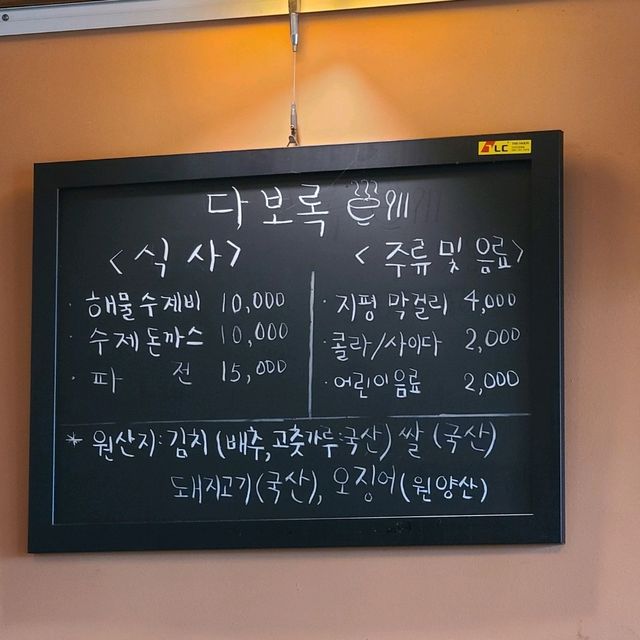 다보록
<식사>
· 해물수제비 10,000
· 수제돈까스 10,000
· 파 전 15,000
<주류 및 음료>
· 지평 막걸리 4,000
· 콜라/사이다 2,000
· 어린이음료 2,000
* 원산지: 김치(배추,고춧가루:국산) 쌀(국산)
돼지고기(국산), 오징어(원양산)